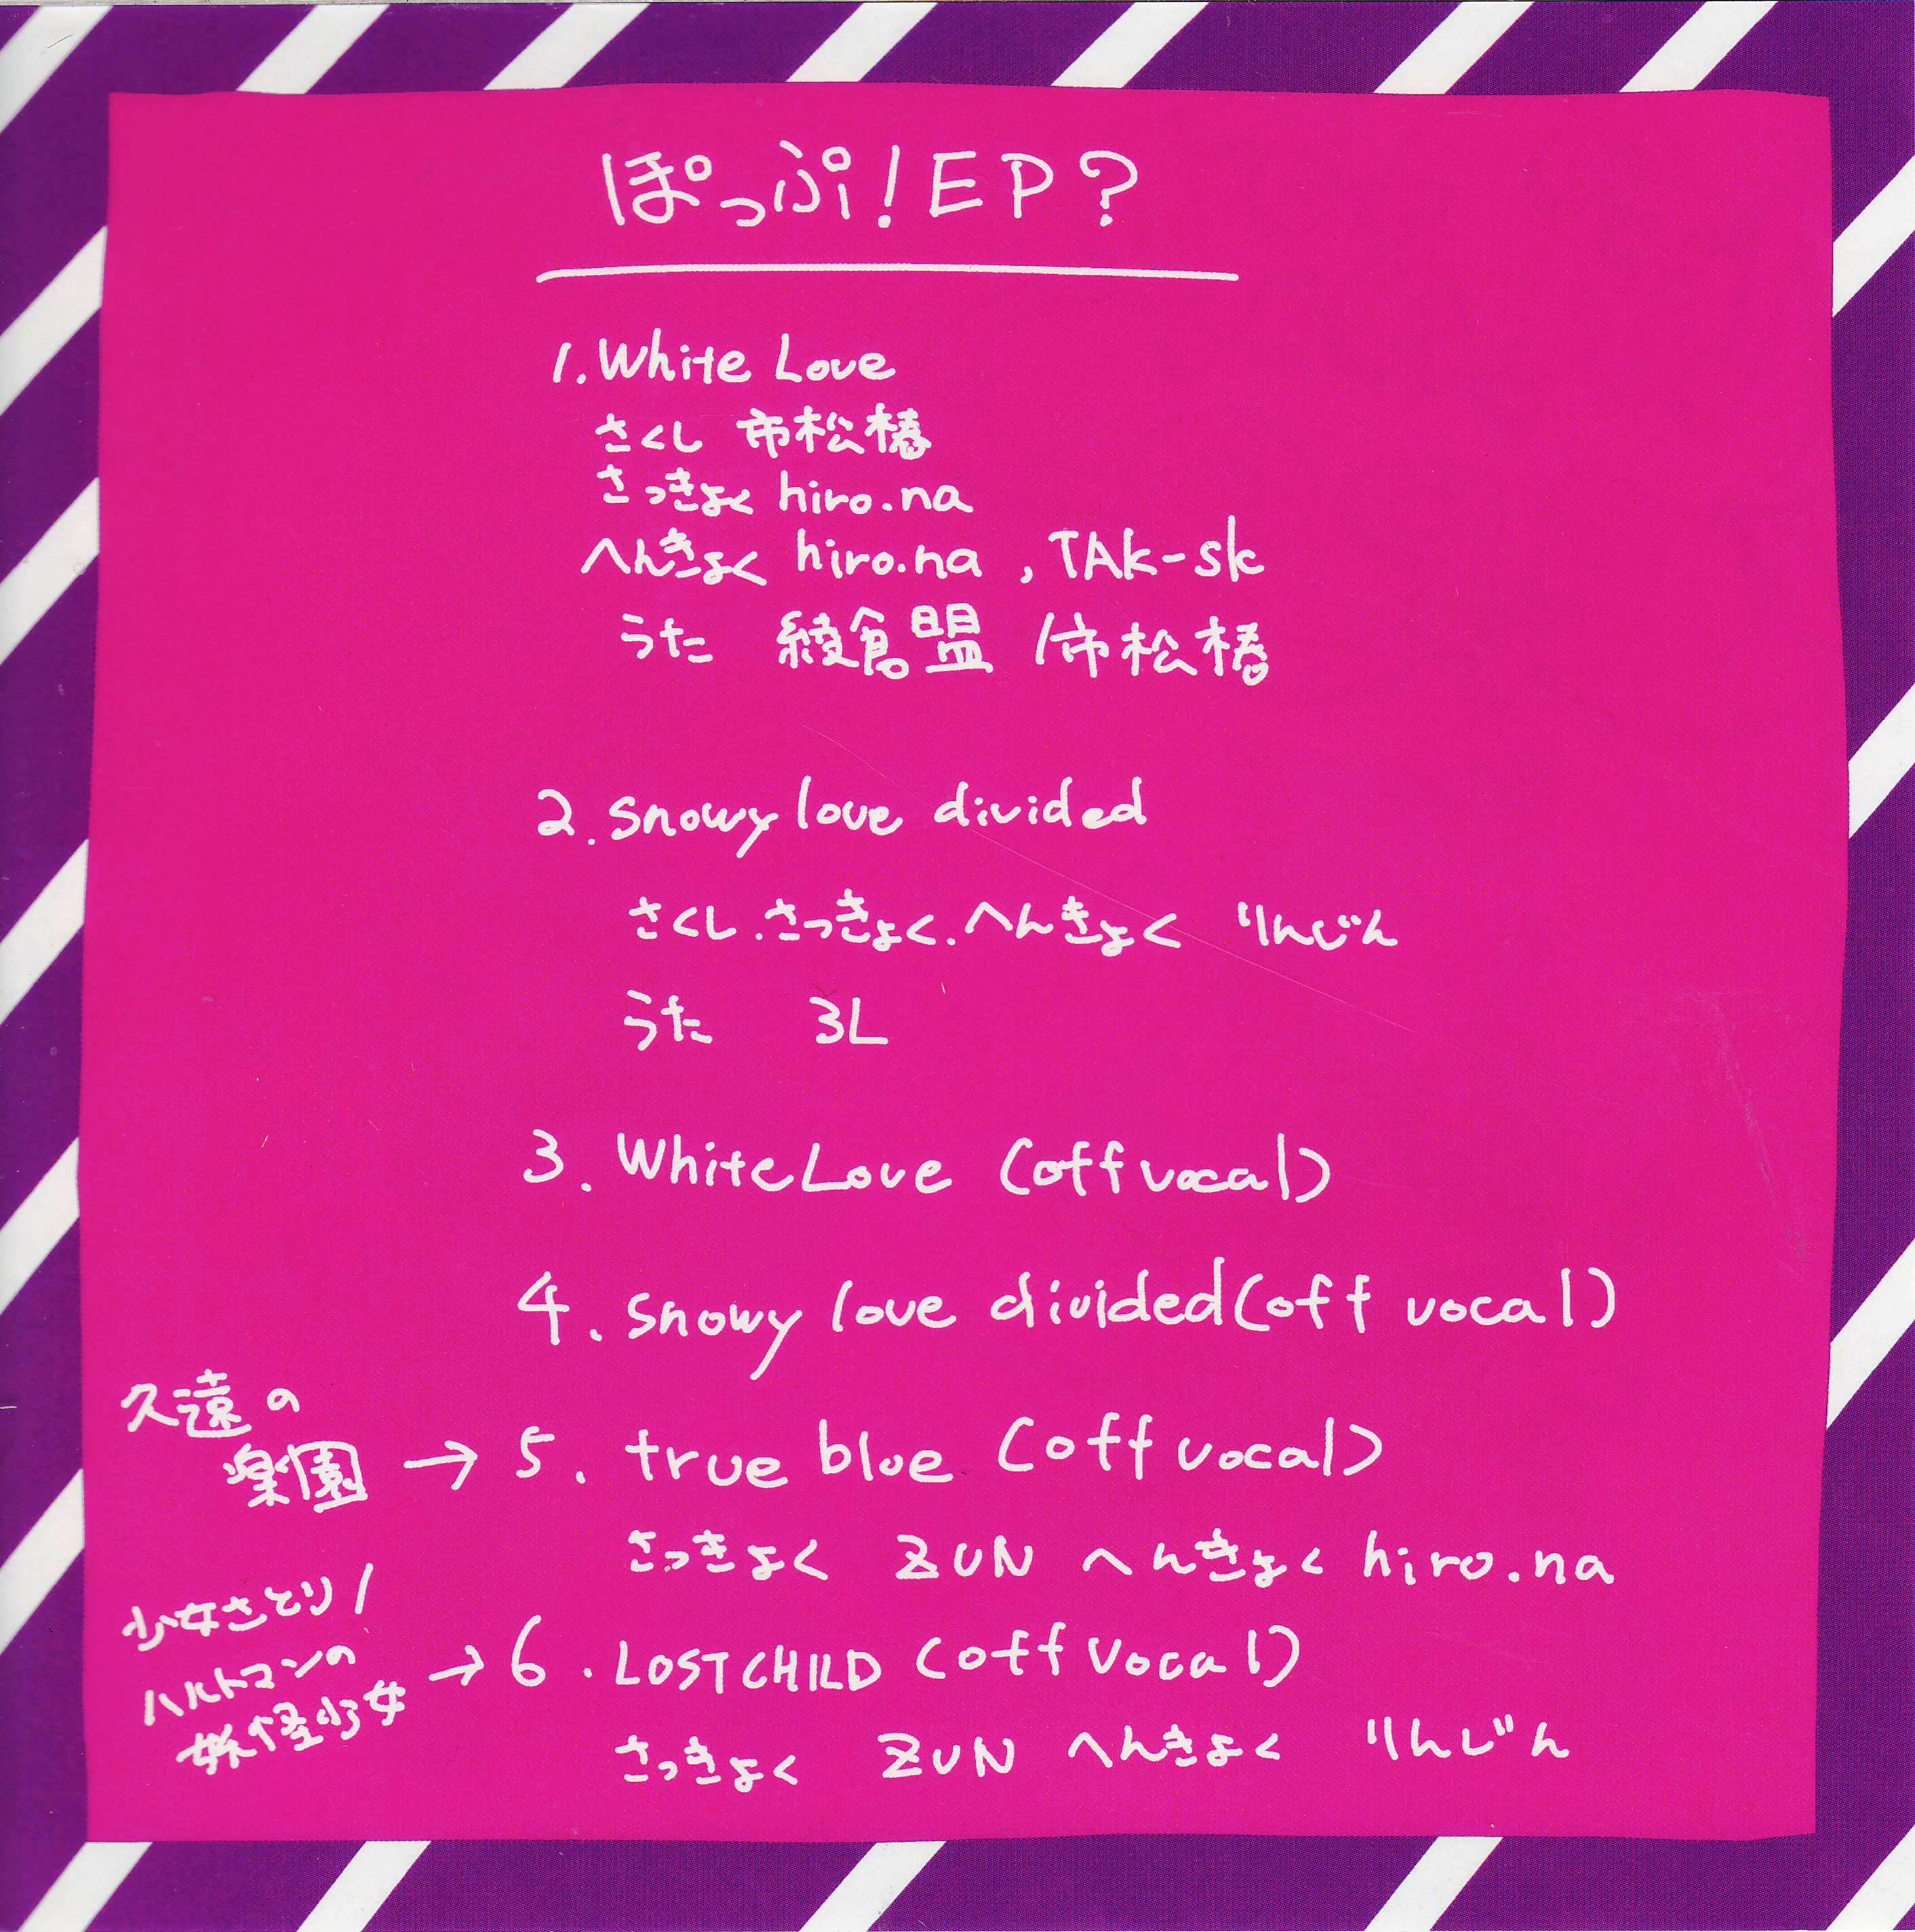 ぽっぷ!EP?
1. White Love
さくし 市松椿
さっきょく hiro.na
へんきょく hiro.na , TAK-sk
うた 綾倉盟 /市松椿
2. snowy love divided
さくし.さっきょく.へんきょく りんじん
うた 3L
3. White Love (off vocal)
4. snowy love divided (off vocal)
久遠の
楽園 → 5. true blue (off vocal)
さっきょく ZUN へんきょく hiro.na
少女さとり/
ハルトマンの
妖怪少女 → 6. LOST CHILD (off vocal)
さっきょく ZUN へんきょく りんじん